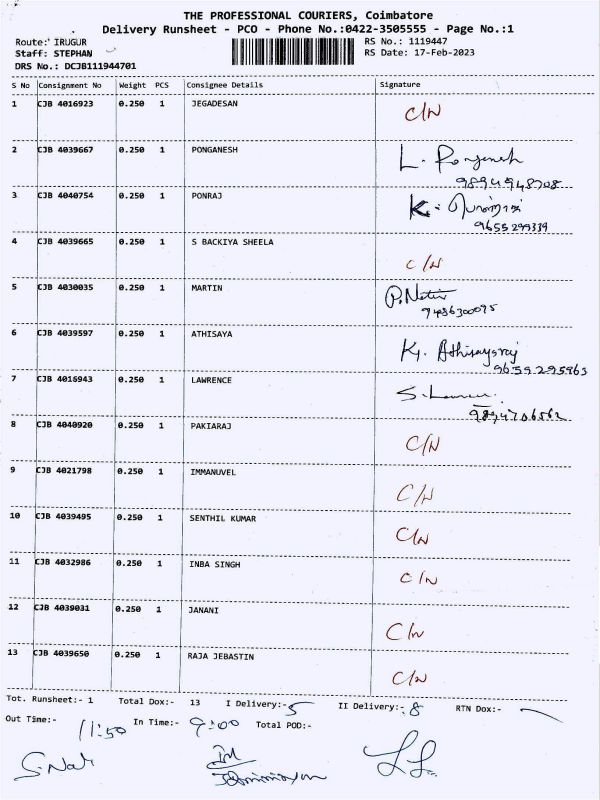 THE PROFESSIONAL COURIERS, Coimbatore
Delivery Runsheet - PCO - Phone No.:0422-3505555 - Page No.:1
Route: IRUGUR RS No.: 1119447
Staff: STEPHAN RS Date: 17-Feb-2023
DRS No.: DCJB111944701
S No Consignment No Weight PCS Consignee Details Signature
1 CJB 4016923 0.250 1 JEGADESAN C/N
2 CJB 4039667 0.250 1 PONGANESH L. Ponganesh
9894948708
3 CJB 4040754 0.250 1 PONRAJ K.
9655299339
4 CJB 4039665 0.250 1 S BACKIYA SHEELA C/N
5 CJB 4030035 0.250 1 MARTIN
9486300095
6 CJB 4039597 0.250 1 ATHISAYA K. Athisayaraj
9659295963
7 CJB 4016943 0.250 1 LAWRENCE S.
9894706562
8 CJB 4040920 0.250 1 PAKIARAJ C/N
9 CJB 4021798 0.250 1 IMMANUVEL C/N
10 CJB 4039495 0.250 1 SENTHIL KUMAR C/N
11 CJB 4032986 0.250 1 INBA SINGH C/N
12 CJB 4039031 0.250 1 JANANI C/N
13 CJB 4039650 0.250 1 RAJA JEBASTIN C/N
Tot. Runsheet:- 1 Total Dox:- 13 I Delivery:- 5 II Delivery:- 8 RTN Dox:-
Out Time:- 11:50 In Time:- 9:00 Total POD:-